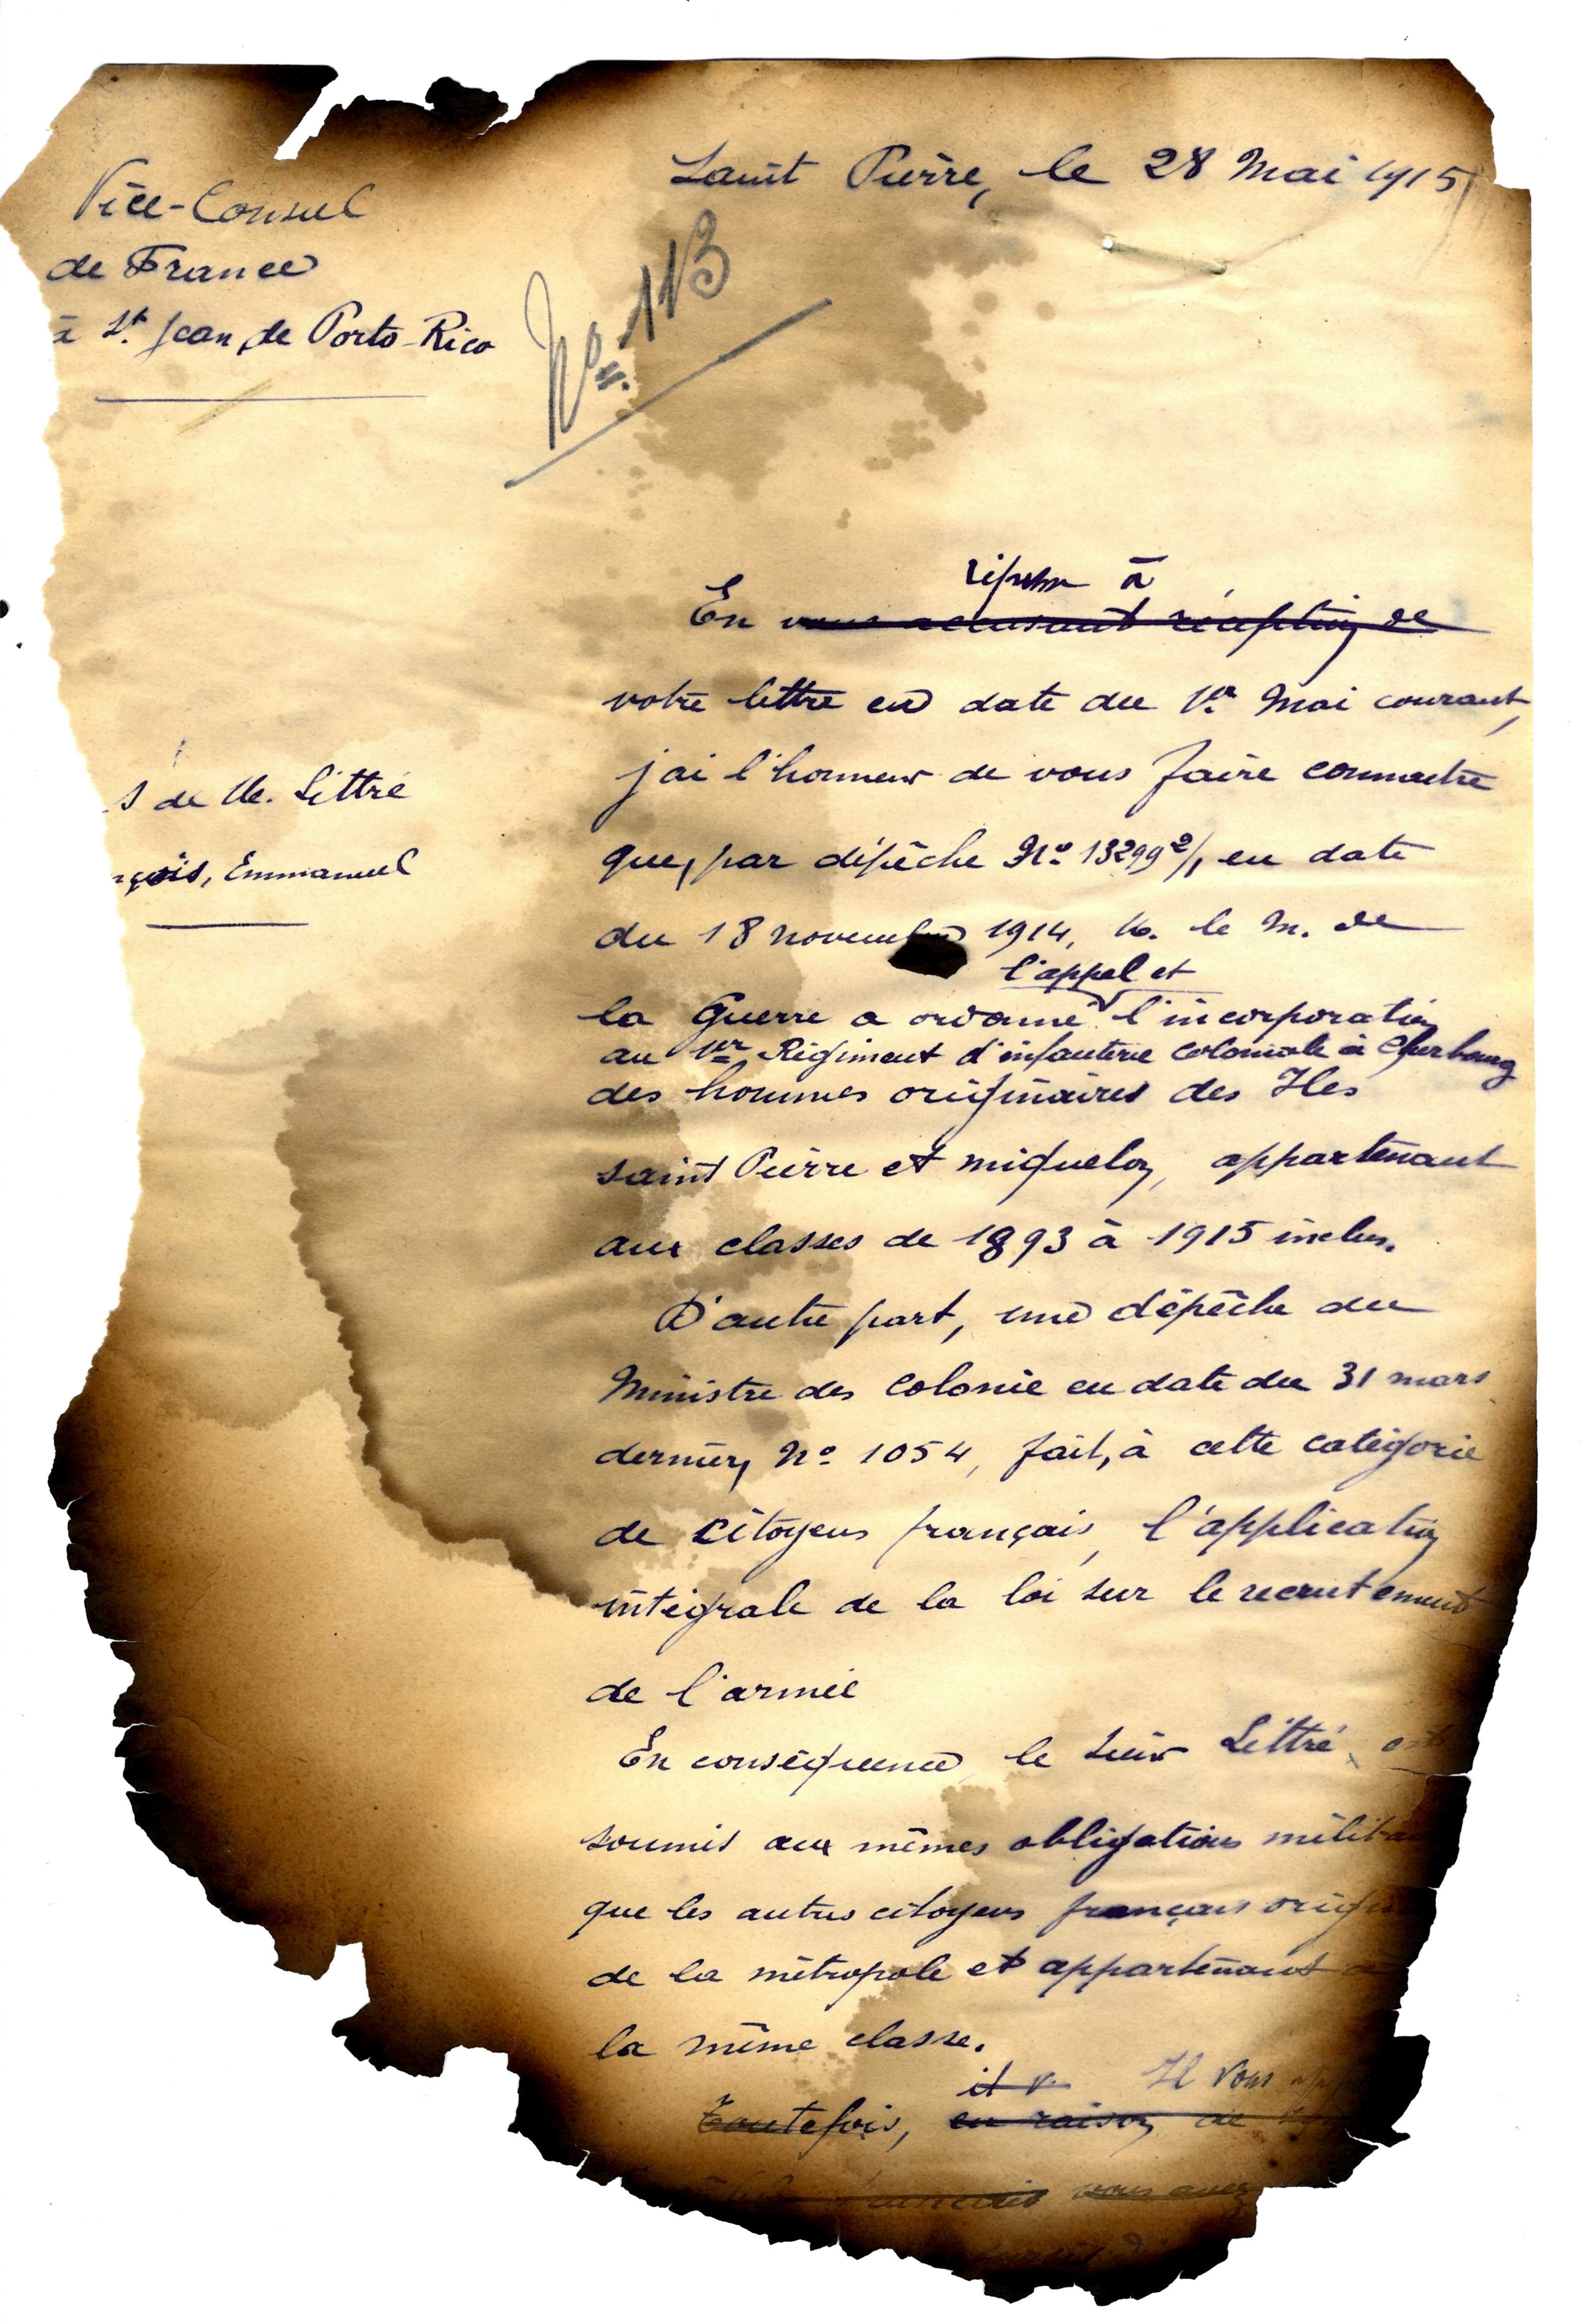 Saint Pierre, le 28 Mai 1915
Vice-Consul
de France
à St. Jean de Porto-Rico
No. 113
réponse à
En vous accusant réception de
votre lettre en date du 1er Mai courant,
j'ai l'honneur de vous faire connaitre
que, par dépêche No 13299 2/1, en date
du 18 novembre 1914, M. le M. de
l'appel et
la Guerre a ordonné l'incorporation
au 1er Régiment d'infanterie coloniale à Cherbourg
des hommes originaires des Iles
Saint Pierre et Miquelon, appartenant
aux classes de 1893 à 1915 inclus.
s de M. Littré
nçois, Emmanuel
D'autre part, une dépêche du
Ministre des Colonie en date du 31 mars
dernier, No 1054, fait, à cette catégorie
de citoyens français, l'application
intégrale de la loi sur le recrutement
de l'armée
En conséquence, le sieur Littré, est
soumis aux mêmes obligations milita
que les autres citoyens français origin
de la métropole et appartenant à
la même classe.
il v Il vous app
Toutefois, en raison de
français vous avez